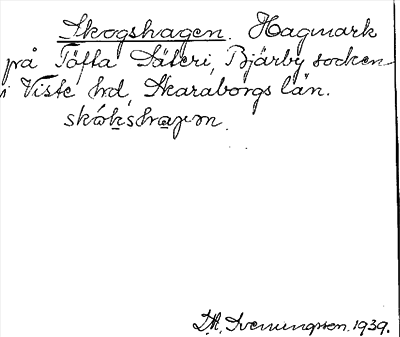 Skogshagen. Hagmark
på Töfta Säteri, Bjärby socken
i Viste hd, Skaraborgs län.
skókshaγ̣m.
D.A. Svenungsson. 1939.